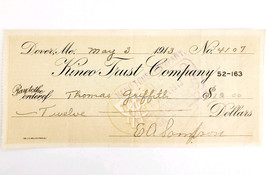 Dover, Me. May 3 1913 No. 4107
Kineo Trust Company 52-163
Pay to the order of Thomas Griffith $ .00
Twelve Dollars